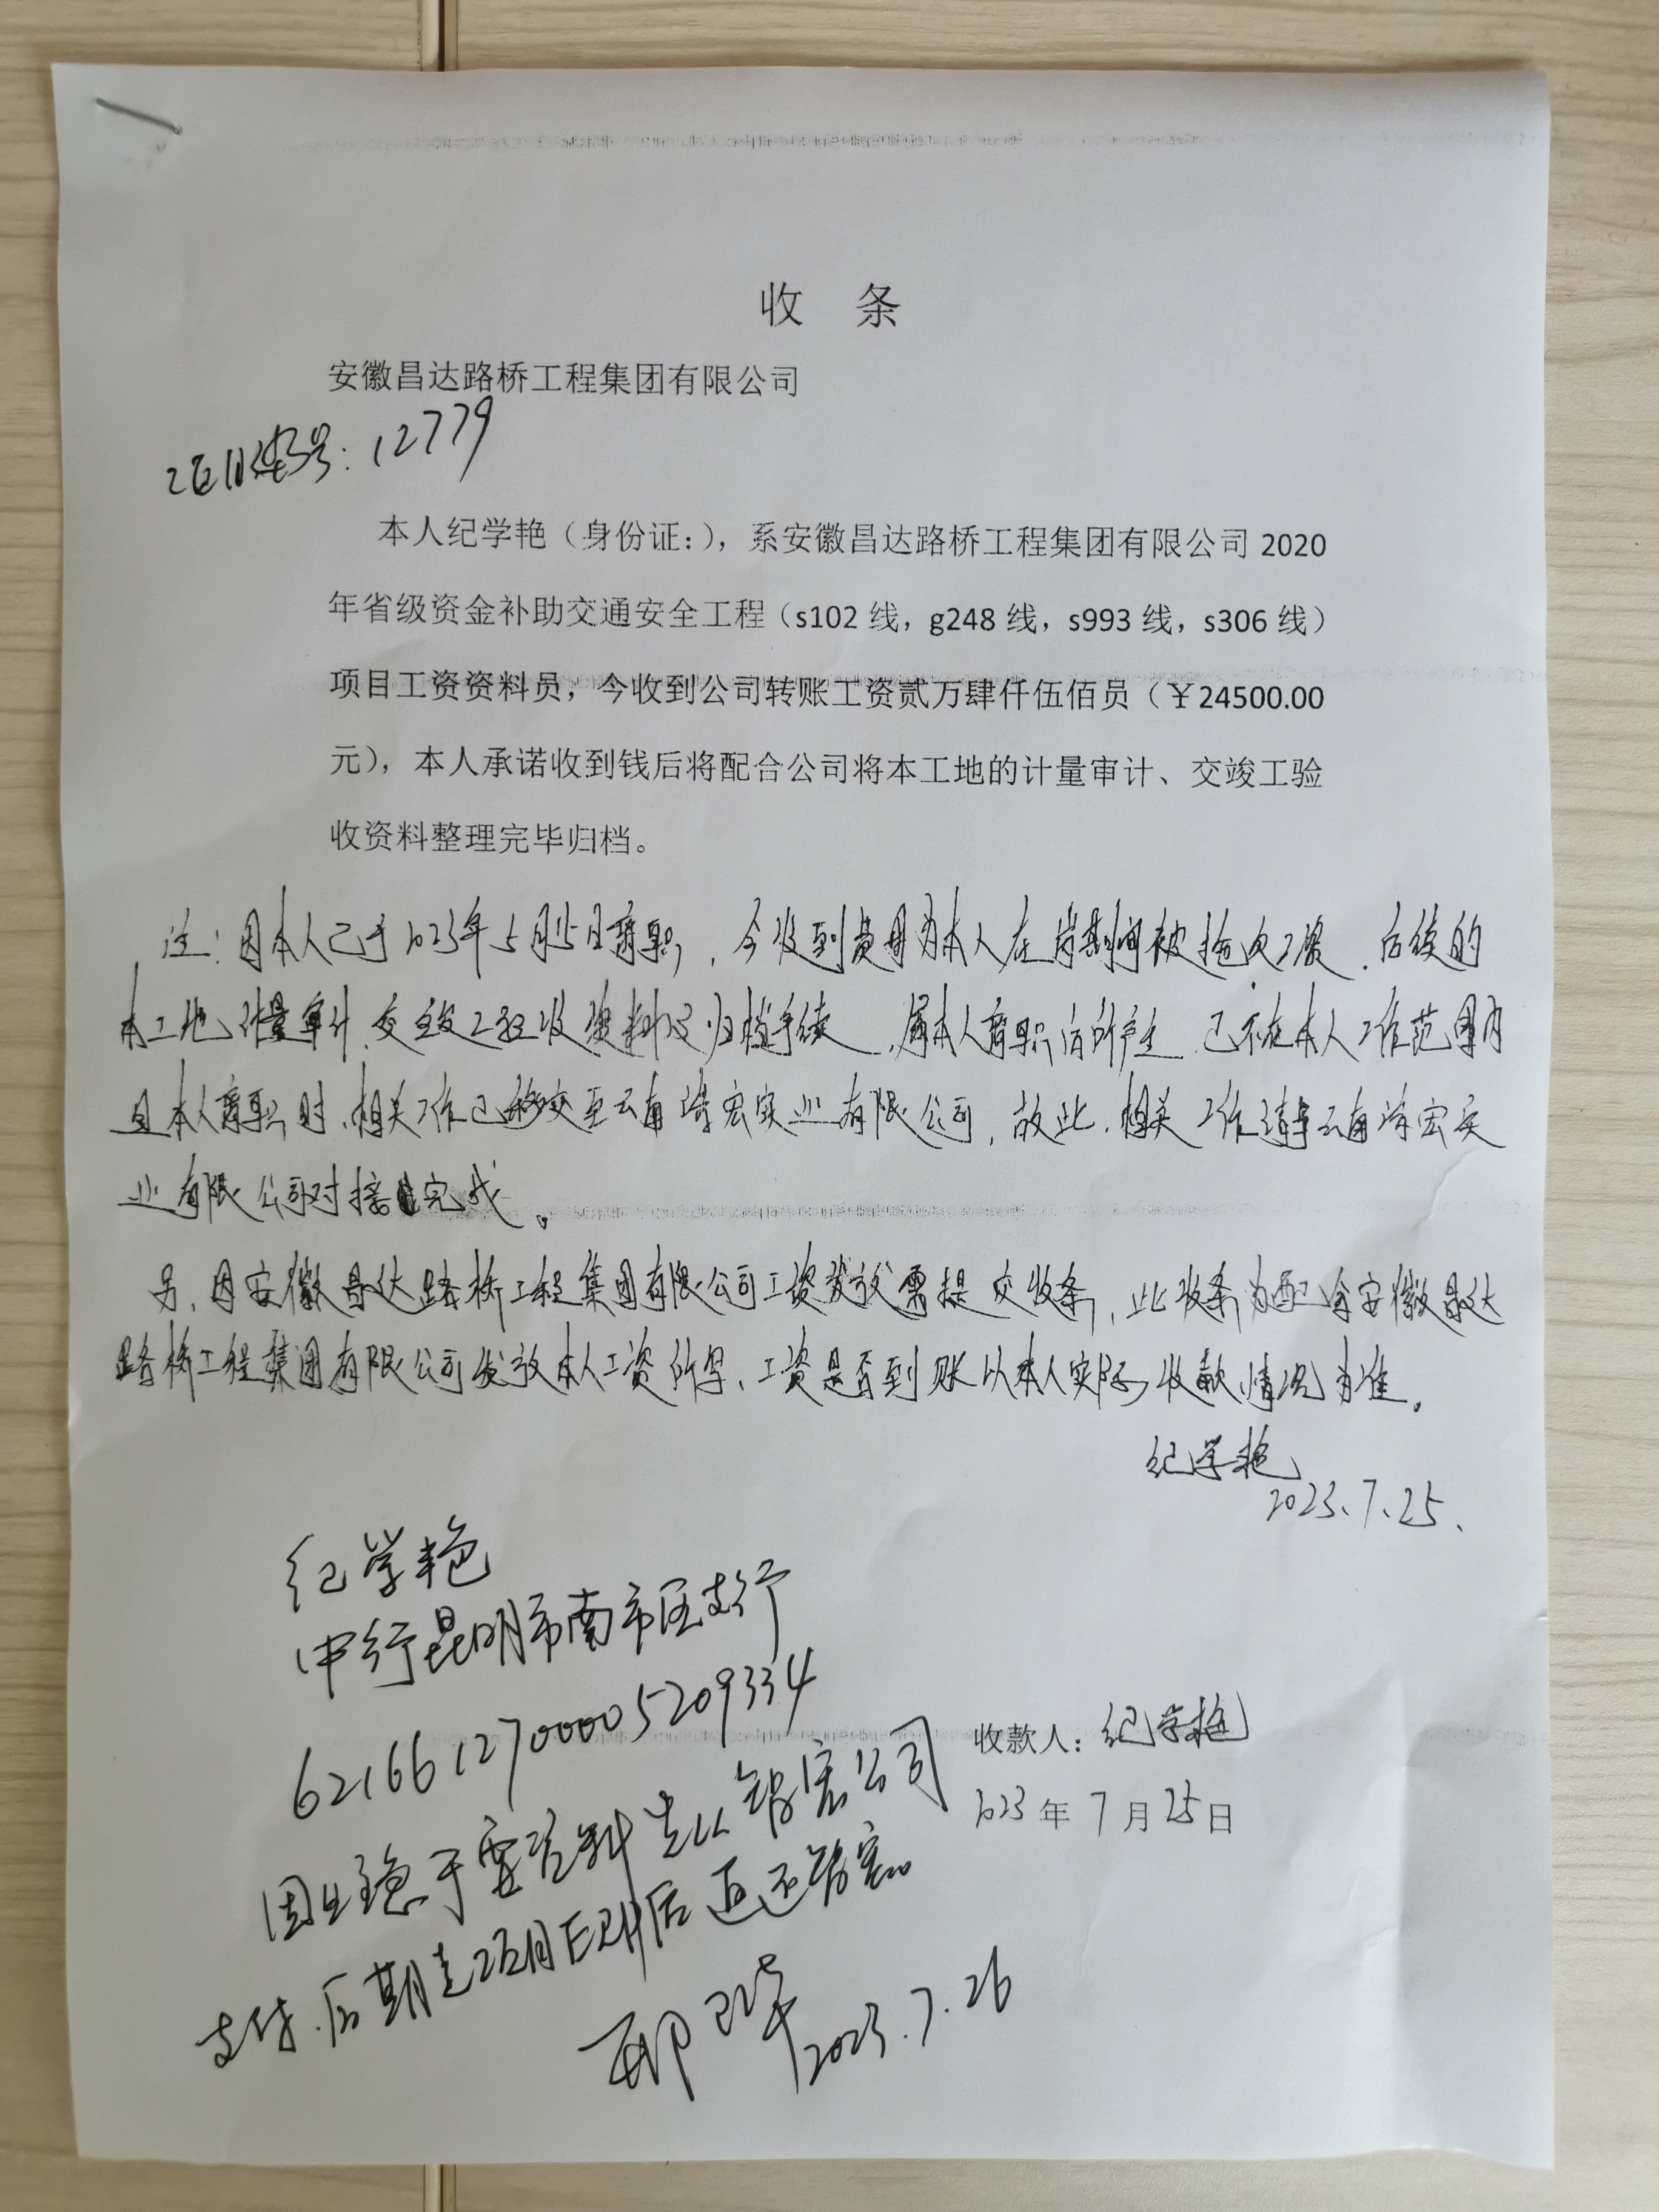 收 条
安徽昌达路桥工程集团有限公司
项目编号：12779
本人纪学艳（身份证：），系安徽昌达路桥工程集团有限公司 2020
年省级资金补助交通安全工程（s102 线，g248 线，s993 线，s306 线）
项目工资资料员，今收到公司转账工资贰万肆仟伍佰员（￥24500.00
元），本人承诺收到钱后将配合公司将本工地的计量审计、交竣工验
收资料整理完毕归档。
注：因本人已于2023年5月15日离职，今收到费用为本人在岗期间被拖欠工资，后续的
本工地计量审计、交竣工验收资料及归档手续，属本人离职后所产生，已不在本人工作范围内
且本人离职时，相关工作已移交至云南涛宏实业有限公司，故此，相关工作请与云南涛宏实
业有限公司对接完成。
另，因安徽昌达路桥工程集团有限公司工资发放需提交收条，此收条为配合安徽昌达
路桥工程集团有限公司发放本人工资所写，工资是否到账以本人实际收款情况为准。
纪学艳
2023.7.25.
纪学艳
中行昆明市南市区支行
6216612700005209334
收款人：纪学艳
2023年 7 月 25日
因 于要资料先从 宏公司
支付.后期走项目 后返还 宏。
邢 2023.7.26